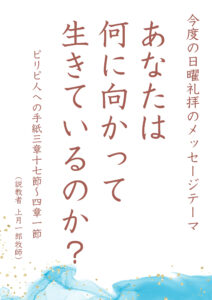 今度の日曜礼拝のメッセージテーマ
あなたは
何に向かって
生きているのか？
ピリピ人への手紙三章十七節～四章一節
（説教者 上月一郎牧師）